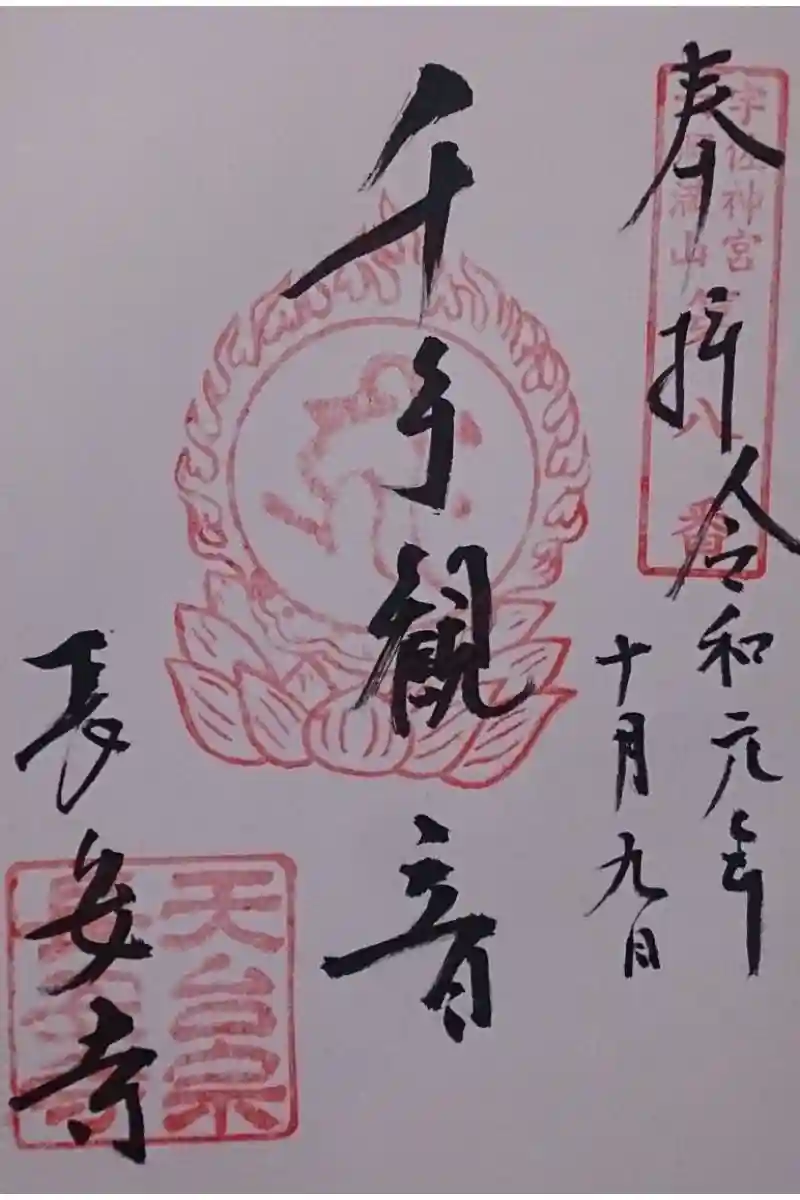 奉拝 令和元年
十月九日
千手観音
長安寺
宇佐神宮
六郷満山
第八番
天台宗
長安寺